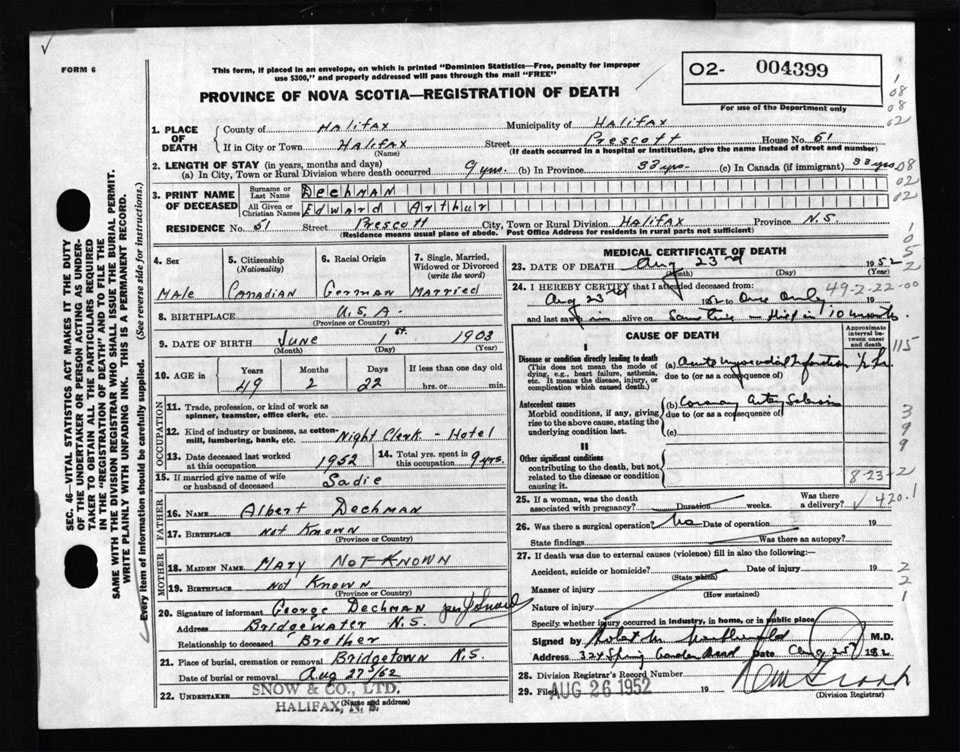 FORM 6
This form, if placed in an envelope, on which is printed "Dominion Statistics—Free, penalty for improper
use $300," and properly addressed will pass through the mail "FREE"
PROVINCE OF NOVA SCOTIA—REGISTRATION OF DEATH
02- 004399
For use of the Department only
1. PLACE OF DEATH
County of Halifax Municipality of Halifax
If in City or Town Halifax Street Prescott House No. 51
(Name) (If death occurred in a hospital or institution, give the name instead of street and number)
2. LENGTH OF STAY (in years, months and days)
(a) In City, Town or Rural Division where death occurred 9 yrs. (b) In Province 33 yrs. (c) In Canada (if immigrant) 33 yrs
3. PRINT NAME OF DECEASED
Surname or Last Name Dechman
All Given or Christian Names Edward Arthur
RESIDENCE No. 51 Street Prescott City, Town or Rural Division Halifax Province N.S.
(Residence means usual place of abode. Post Office Address for residents in rural parts not sufficient)
4. Sex
Male
5. Citizenship
(Nationality)
Canadian
6. Racial Origin
German
7. Single, Married,
Widowed or Divorced
(write the word)
Married
8. BIRTHPLACE U.S.A.
(Province or Country)
9. DATE OF BIRTH June 1st. 1903
(Month) (Day) (Year)
10. AGE in
Years Months Days If less than one day old
49 2 22 hrs. or min.
OCCUPATION
11. Trade, profession, or kind of work as
spinner, teamster, office clerk, etc.
12. Kind of industry or business, as cotton-
mill, lumbering, bank, etc. Night Clerk - Hotel
13. Date deceased last worked
at this occupation 1952
14. Total yrs. spent in
this occupation 9 yrs.
15. If married give name of wife
or husband of deceased Sadie
FATHER
16. NAME Albert Dechman
17. BIRTHPLACE Not Known
(Province or Country)
MOTHER
18. MAIDEN NAME Mary Not Known
19. BIRTHPLACE Not Known
(Province or Country)
20. Signature of informant George Dechman per
Address Bridgewater N.S.
Relationship to deceased Brother
21. Place of burial, cremation or removal Bridgetown N.S.
Date of burial or removal Aug 27/52
22. UNDERTAKER SNOW & CO., LTD.
HALIFAX, N. S.
(Name and address)
MEDICAL CERTIFICATE OF DEATH
23. DATE OF DEATH Aug 23rd 1952
(Month) (Day) (Year)
24. I HEREBY CERTIFY that I attended deceased from 49-2-22-00
Aug 23rd 1952 to once only 19
and last saw him alive on
CAUSE OF DEATH
Approximate interval between onset and death
I
Disease or condition directly leading to death
(This does not mean the mode of
dying, e.g., heart failure, asthenia,
etc. It means the disease, injury, or
complication which caused death.)
(a) Acute myocardial infarction ½ hr.
due to (or as a consequence of)
Antecedent causes
Morbid conditions, if any, giving
rise to the above cause, stating the
underlying condition last.
(b) Coronary Artery Sclerosis
due to (or as a consequence of)
(c)
II
Other significant conditions
contributing to the death, but not
related to the disease or condition
causing it.
8-23-2
420.1
25. If a woman, was the death
associated with pregnancy? Duration weeks. Was there
a delivery?
26. Was there a surgical operation? No Date of operation 19
State findings Was there an autopsy?
27. If death was due to external causes (violence) fill in also the following:—
Accident, suicide or homicide? Date of injury 19
(State which)
Manner of injury
(How sustained)
Nature of injury
Specify whether injury occurred in industry, in home, or in public place
Signed by M.D.
Address 324 Spring Garden Road Date Aug 25 1952
28. Division Registrar's Record Number
29. Filed AUG 26 1952 19
(Division Registrar)
SEC. 46—VITAL STATISTICS ACT MAKES IT THE DUTY
OF THE UNDERTAKER OR PERSON ACTING AS UNDER-
TAKER TO OBTAIN ALL THE PARTICULARS REQUIRED
IN THE "REGISTRATION OF DEATH" AND TO FILE THE
SAME WITH THE DIVISION REGISTRAR WHO SHALL ISSUE THE BURIAL PERMIT.
WRITE PLAINLY WITH UNFADING INK. THIS IS A PERMANENT RECORD.
Every item of information should be carefully supplied. (See reverse side for instructions.)
1
08
08
02
08
02
02
1
0
5
2
115
3
9
9
2
2
1